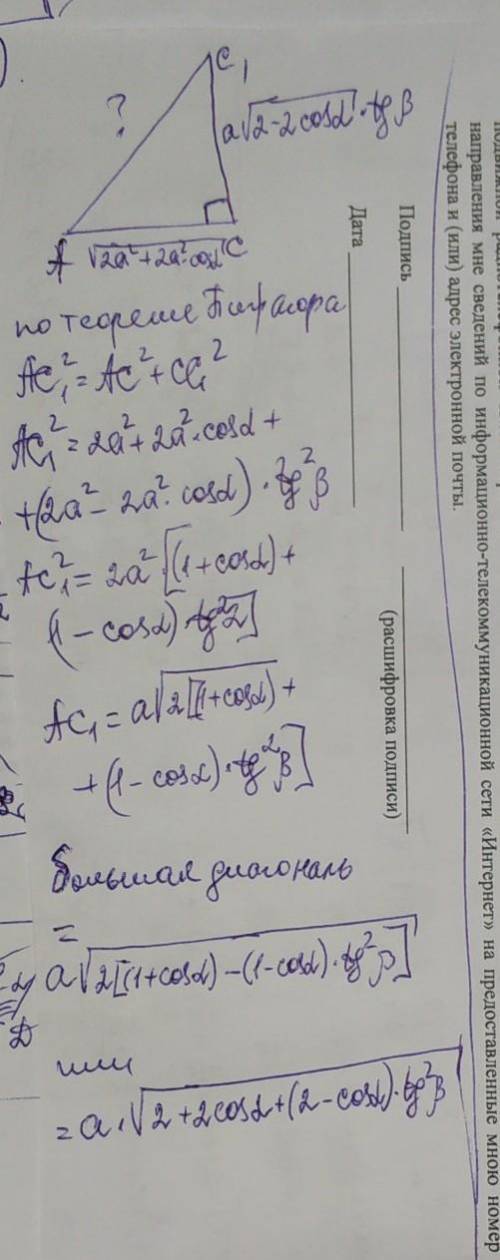 C₁
?
a√(2-2cosα) · tg β
A √(2a²+2a²·cosα) C
по теореме Пифагора
AC₁² = AC² + CC₁²
AC₁² = 2a² + 2a²·cosα +
+(2a² - 2a²·cosα) · tg²β
AC₁² = 2a² [(1+cosα) +
(1 - cosα) · tg²2]
AC₁ = a√2[(1+cosα) +
+ (1 - cosα) · tg²β]
Большая диагональ
=
a√2[(1+cosα) - (1-cosα) · tg²β]
или
= a · √2 + 2cosα + (2 - cosα) · tg²β
D
направления мне сведений по информационно-телекоммуникационной сети «Интернет» на предоставленные мною номер
телефона и (или) адрес электронной почты.
Подпись ____________ ____________
(расшифровка подписи)
Дата ____________